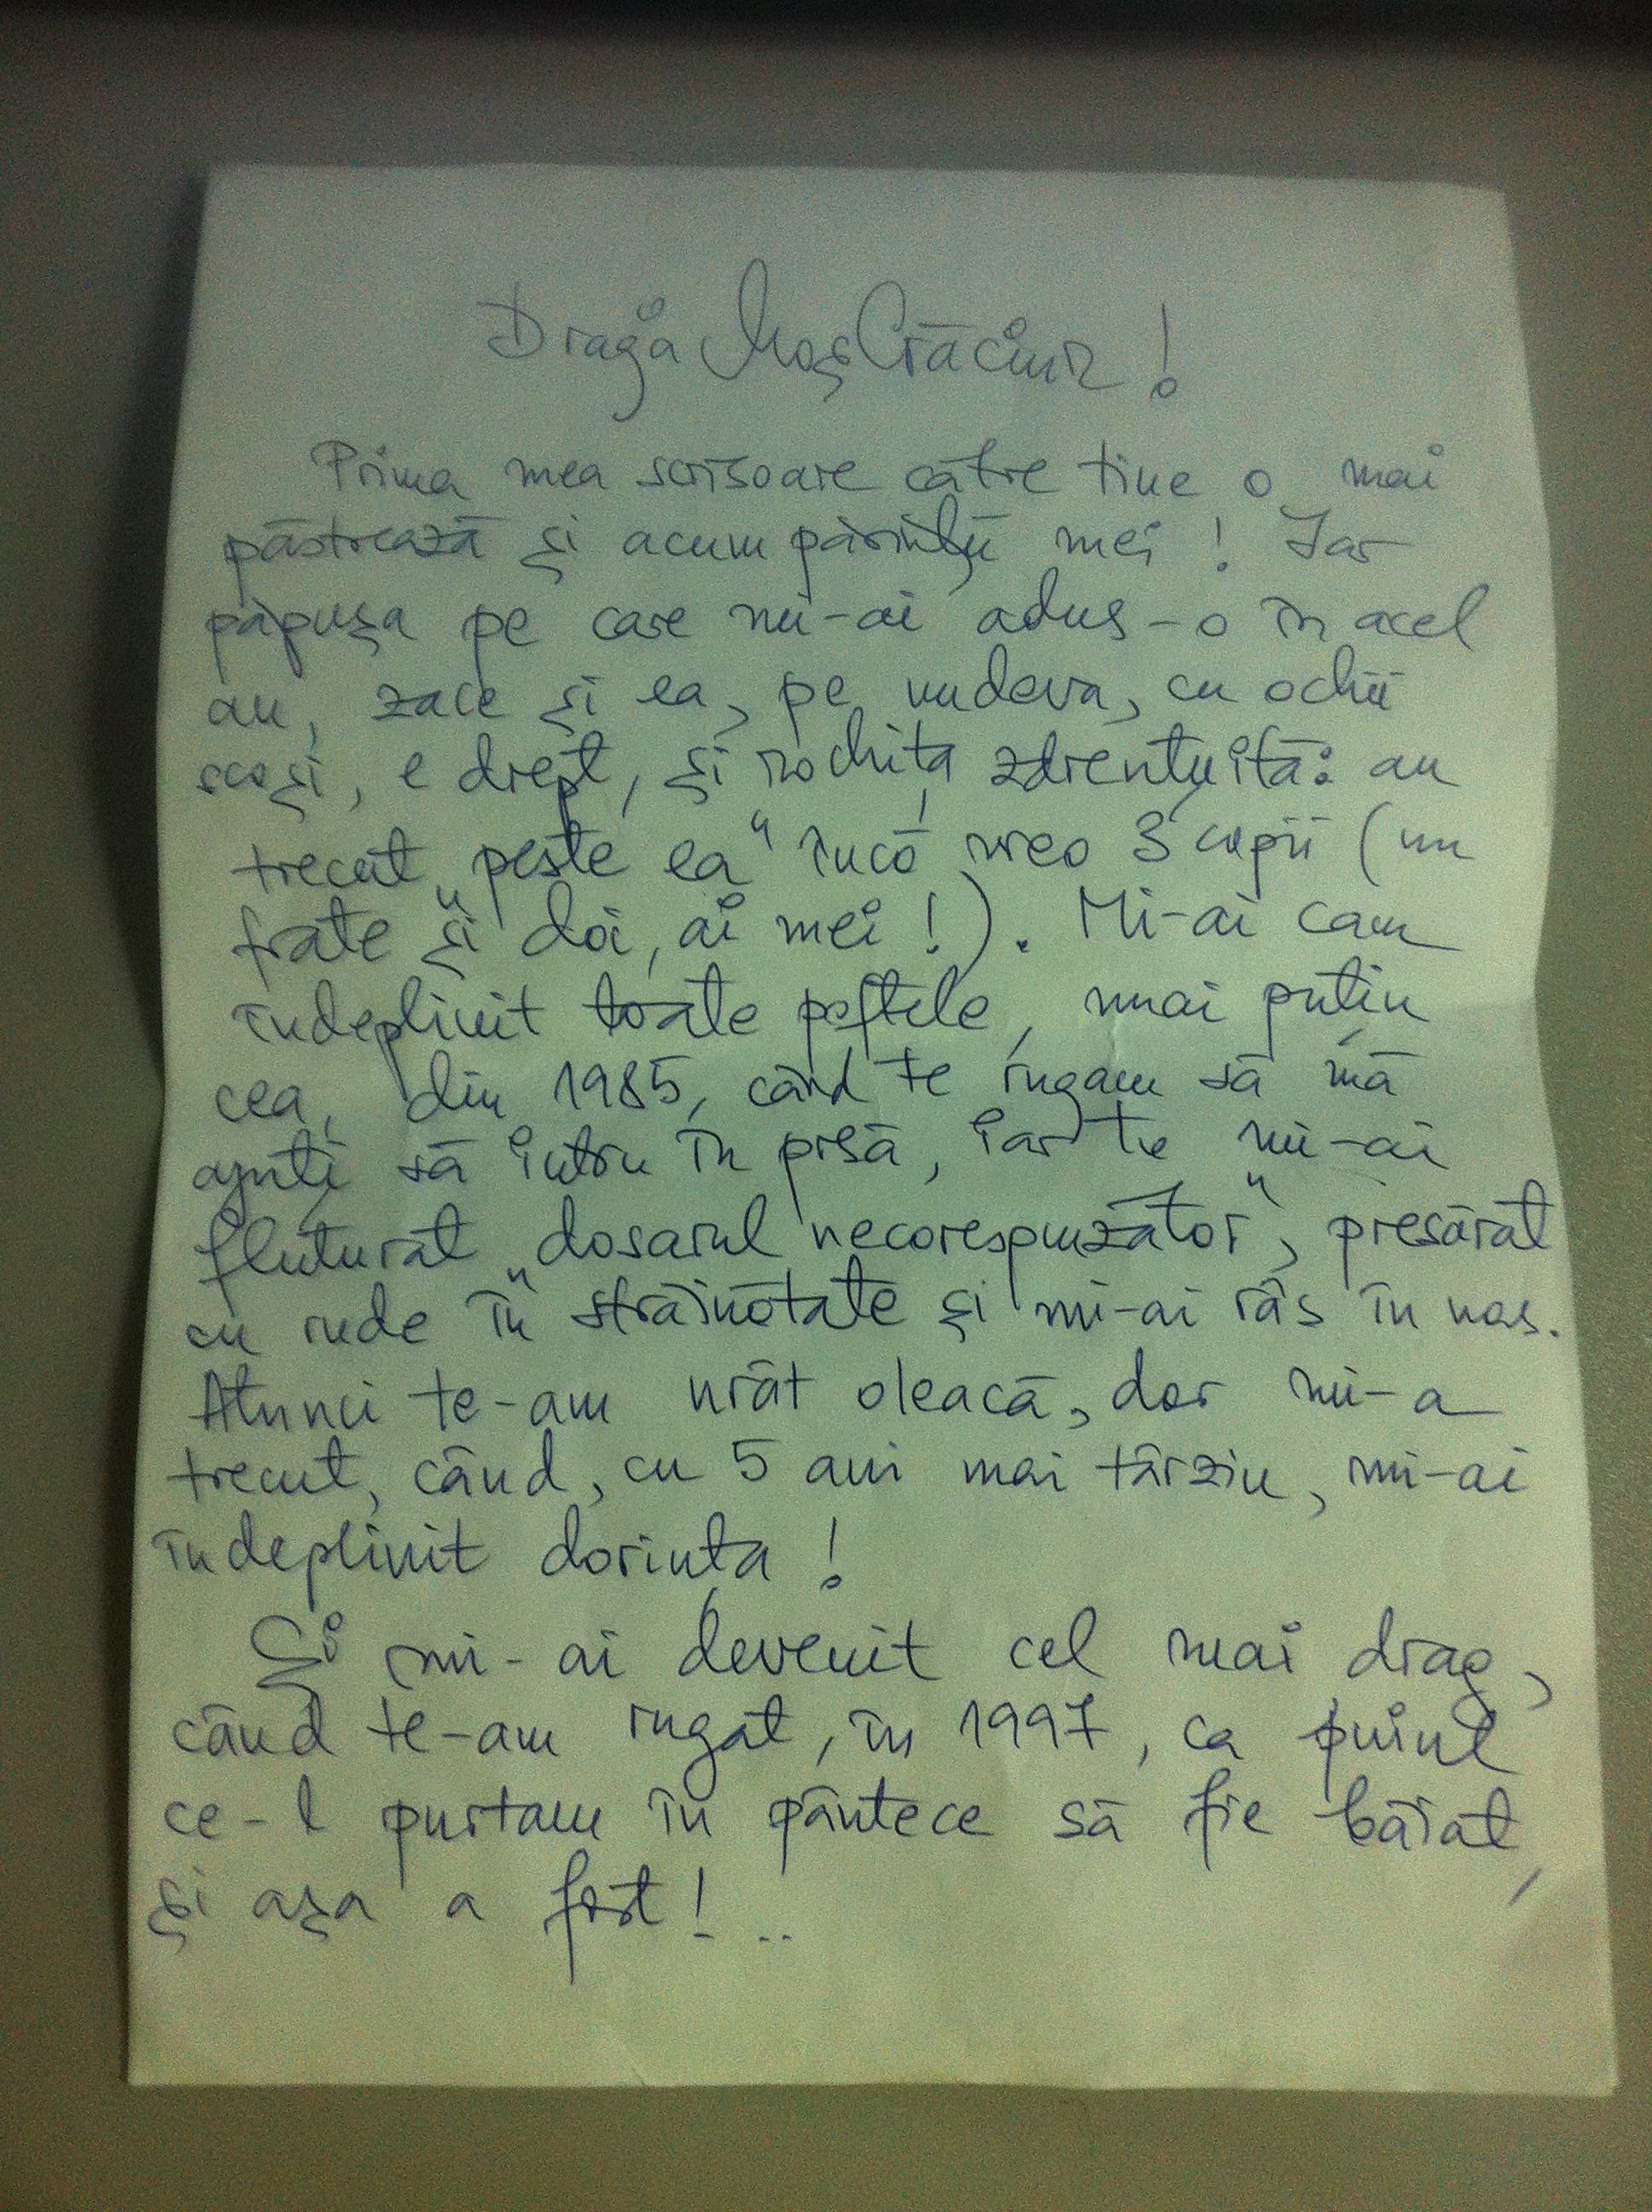 Dragă Moş Crăciun!
Prima mea scrisoare către tine o mai
păstrează şi acum părinţii mei! Iar
păpuşa pe care mi-ai adus-o în acel
an, zace şi ea, pe undeva, cu ochii
scoşi, e drept, şi rochiţa zdrenţuită: au
trecut „peste ea“ încă vreo 3 copii (un
frate şi doi, ai mei!). Mi-ai cam
îndeplinit toate poftele, mai puţin
cea, din 1985, când te rugam să mă
ajuţi să intru în presă, iar tu mi-ai
fluturat „dosarul necorespunzător“, presărat
cu rude în străinătate şi mi-ai râs în nas.
Atunci te-am urât oleacă, dar mi-a
trecut, când, cu 5 ani mai târziu, mi-ai
îndeplinit dorinţa!
Şi mi-ai devenit cel mai drag,
când te-am rugat, în 1997, ca puiul
ce-l purtam în pântece să fie băiat,
şi aşa a fost!..